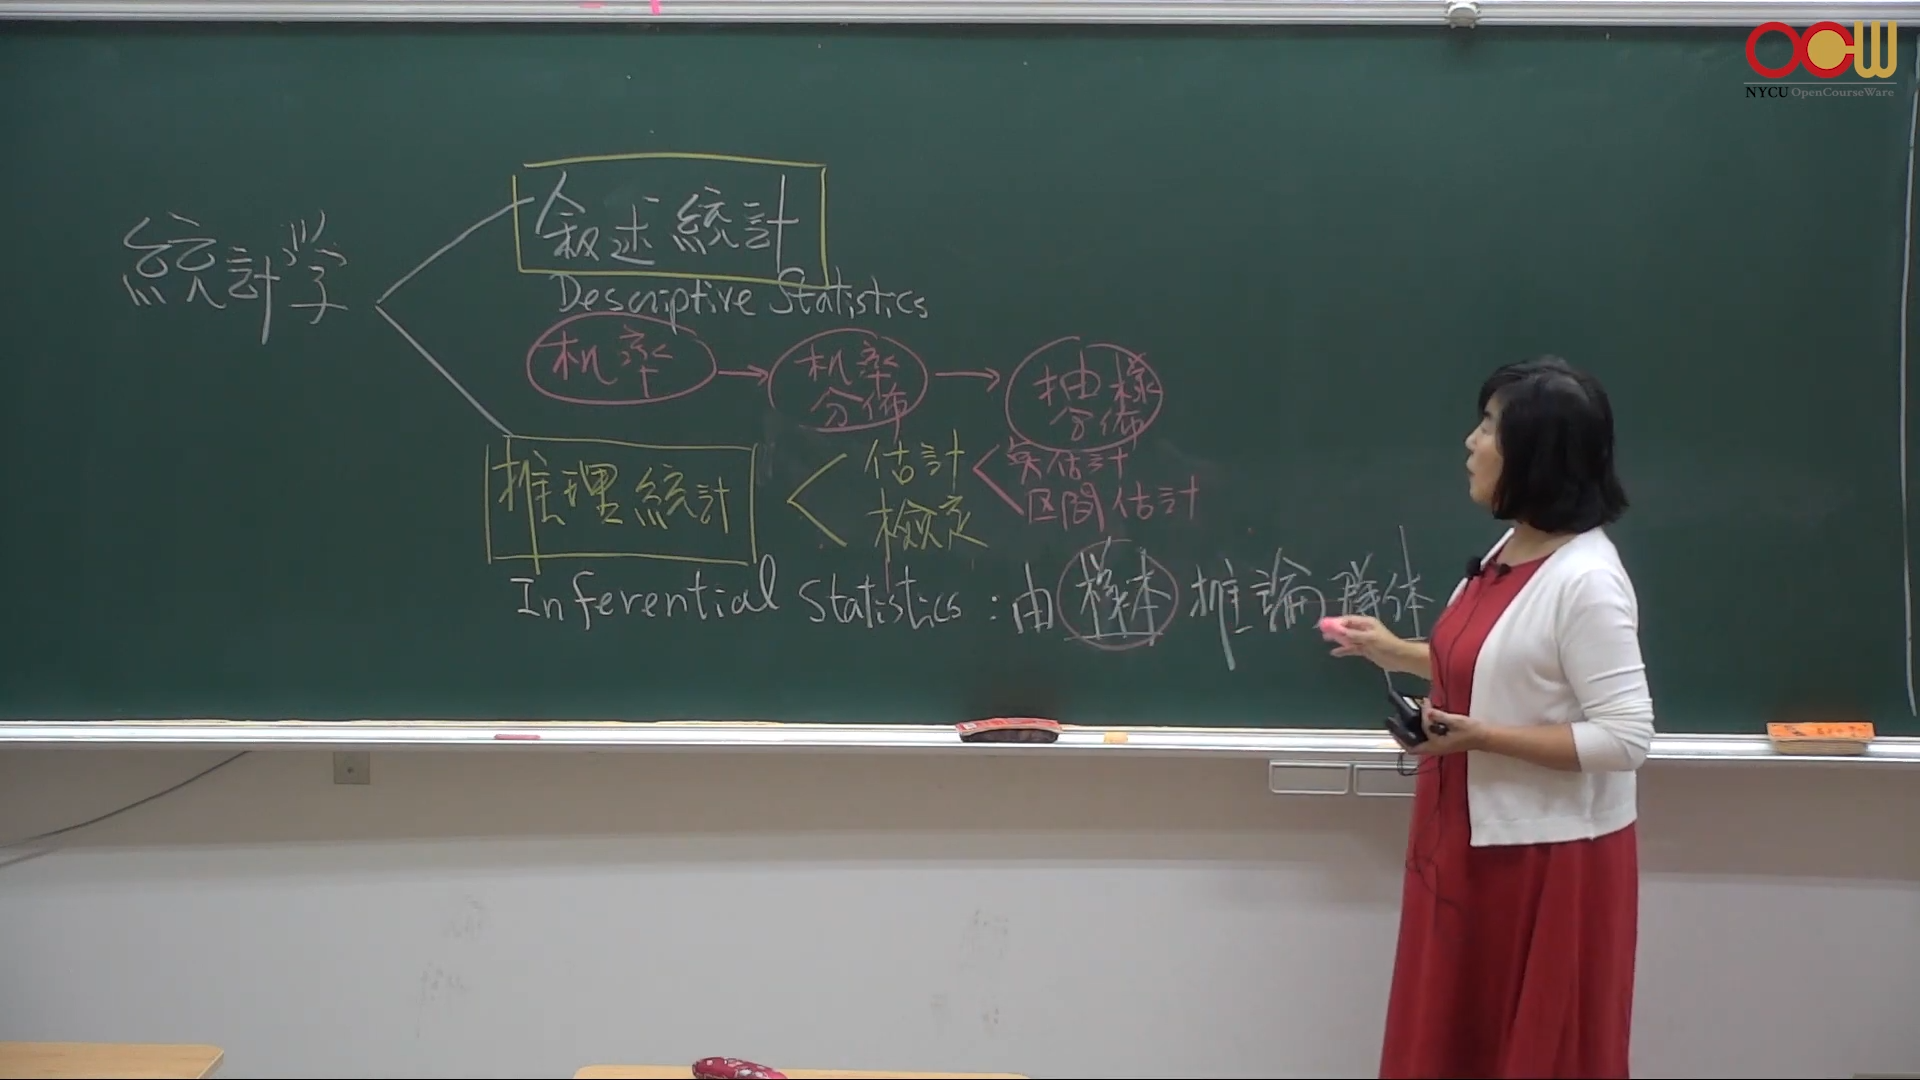 OCW
NYCU OpenCourseWare
統計学
叙述統計
Descriptive Statistics
机率 → 机率分佈 → 抽樣分佈
推理統計
估計
檢定
点估計
区間估計
Inferential Statistics : 由樣本推論群体